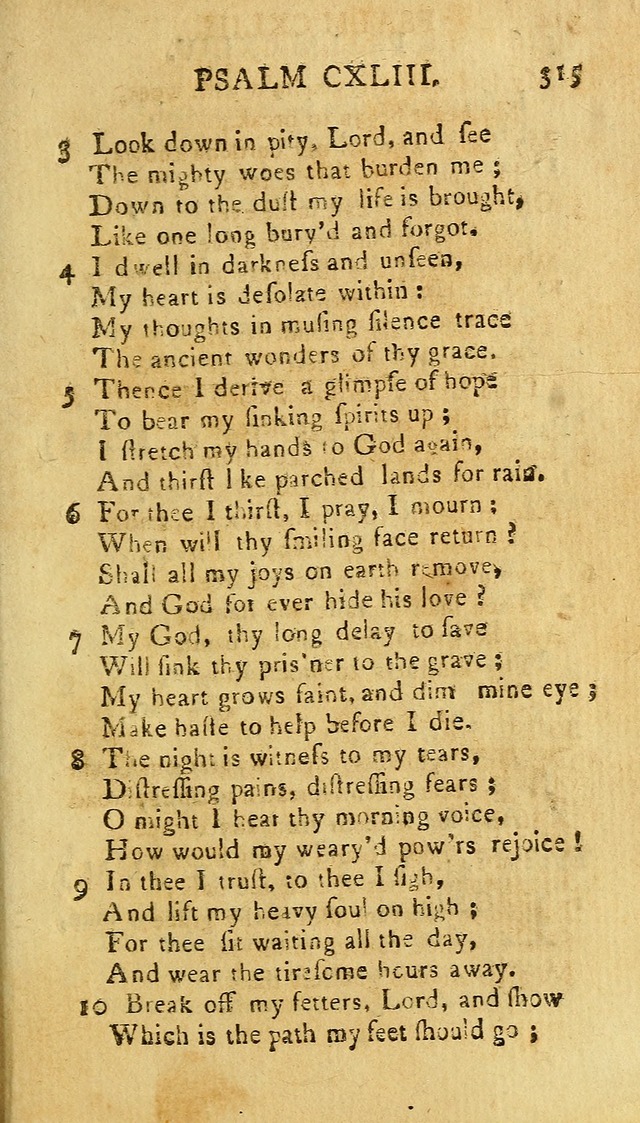 PSALM CXLIII. 315
3 Look down in pity, Lord, and ſee
The mighty woes that burden me ;
Down to the duſt my life is brought,
Like one long bury'd and forgot.
4 I dwell in darkneſs and unſeen,
My heart is deſolate within :
My thoughts in muſing ſilence trace
The ancient wonders of thy grace.
5 Thence I derive a glimpſe of hope
To bear my ſinking ſpirits up ;
I ſtretch my hands to God again,
And thirſt like parched lands for rain.
6 For thee I thirſt, I pray, I mourn ;
When will thy ſmiling face return ?
Shall all my joys on earth remove,
And God for ever hide his love ?
7 My God, thy long delay to ſave
Will ſink thy pris'ner to the grave ;
My heart grows faint, and dim mine eye ;
Make haſte to help before I die.
8 The night is witneſs to my tears,
Diſtreſſing pains, diſtreſſing fears ;
O might I hear thy morning voice,
How would my weary'd pow'rs rejoice !
9 In thee I truſt, to thee I ſigh,
And lift my heavy ſoul on high ;
For thee ſit waiting all the day,
And wear the tireſome hours away.
10 Break off my fetters, Lord, and ſhow
Which is the path my feet ſhould go ;